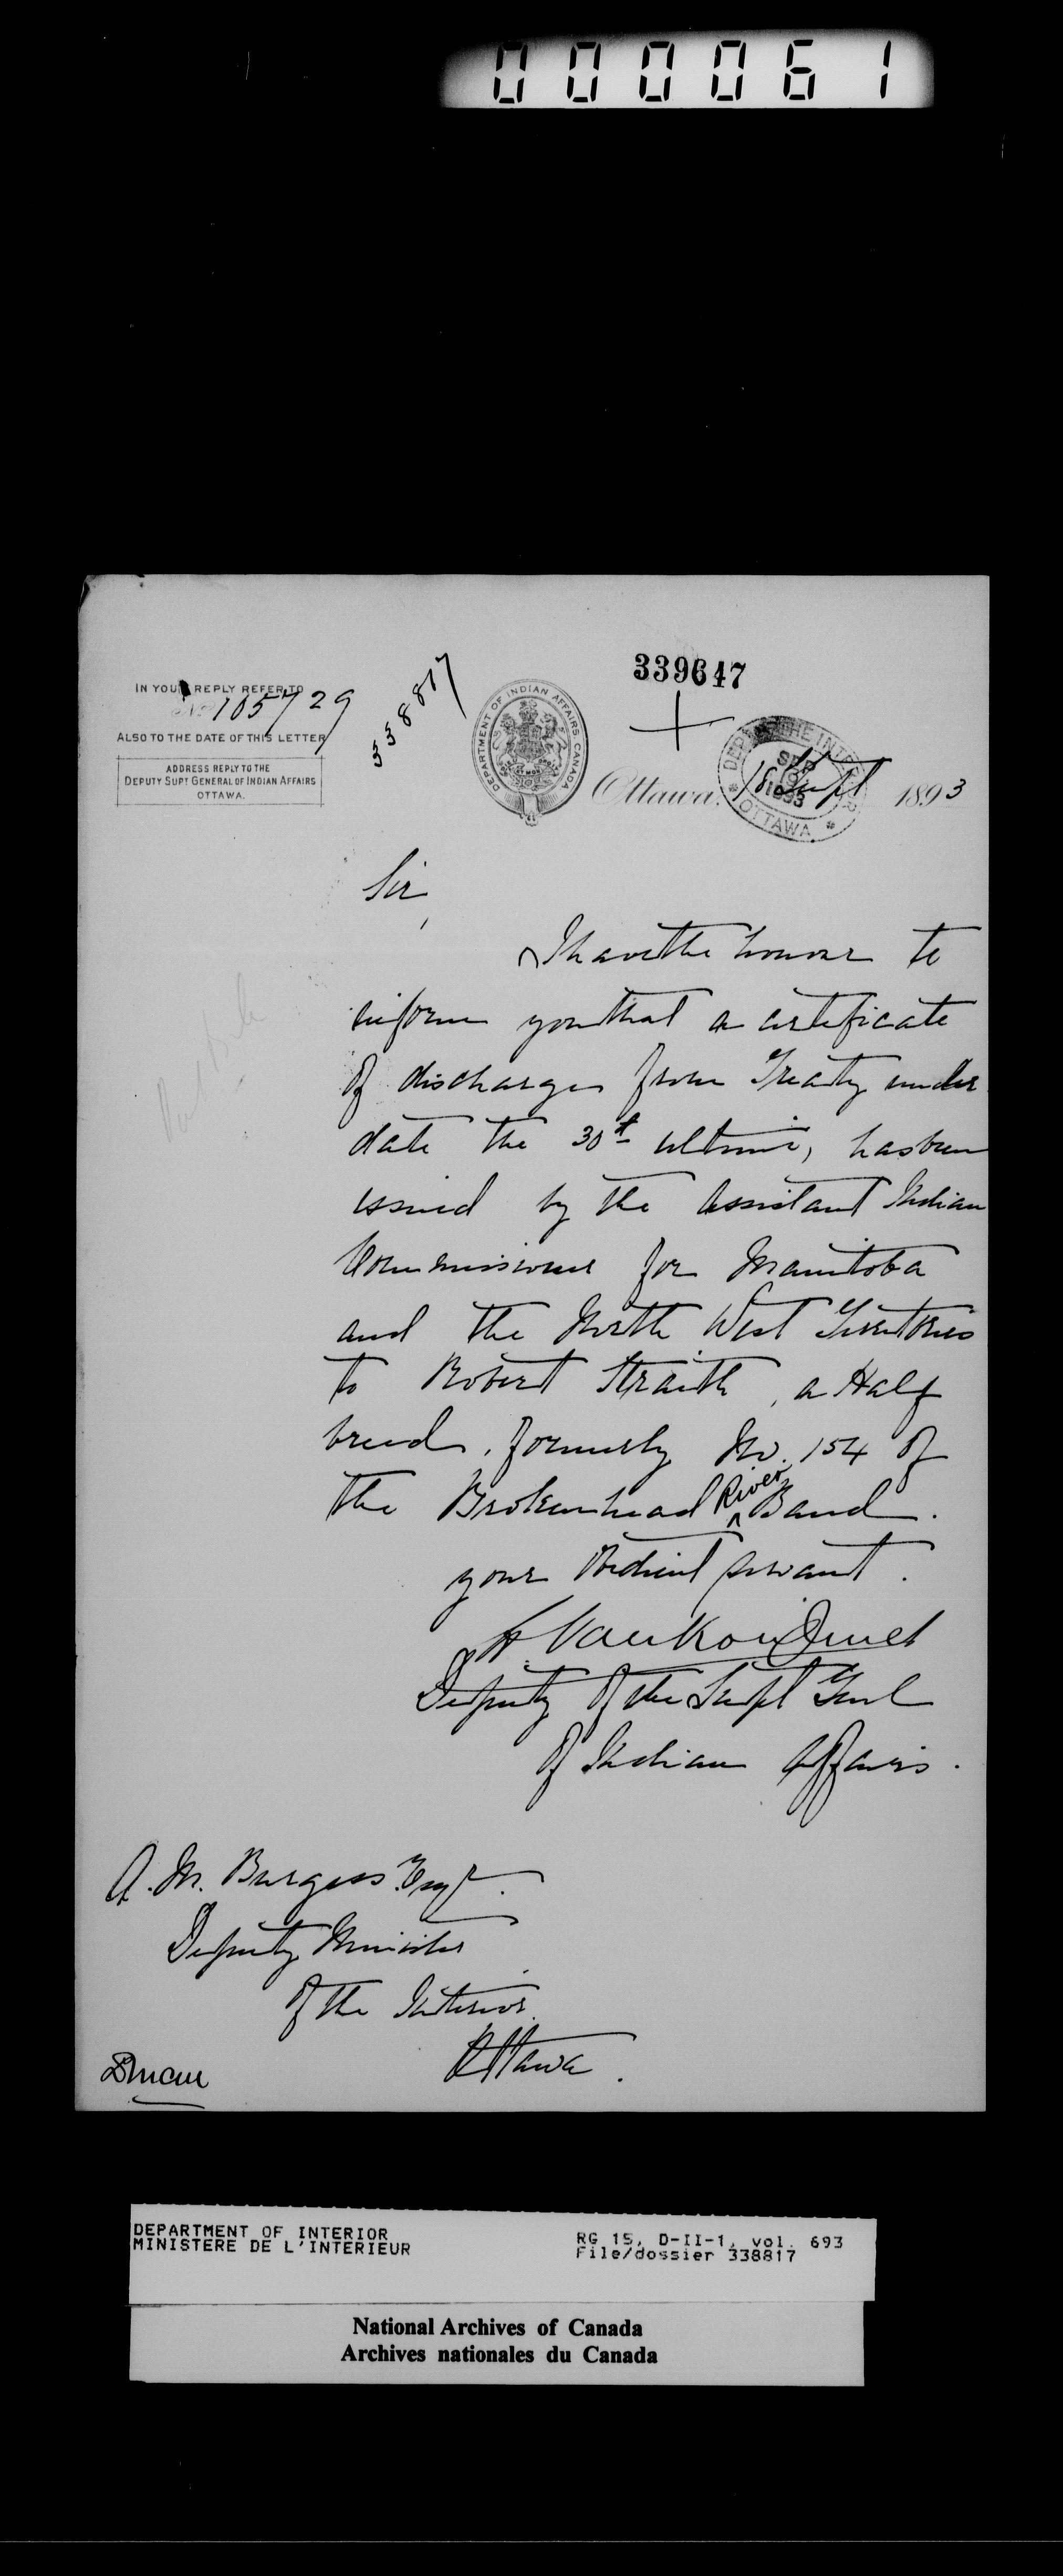 000061
IN YOUR REPLY REFER TO
No 105729
ALSO TO THE DATE OF THIS LETTER
ADDRESS REPLY TO THE
DEPUTY SUPT GENERAL OF INDIAN AFFAIRS
OTTAWA.
338817
DEPARTMENT OF INDIAN AFFAIRS. CANADA
339647
DEPT THE INTERIOR
SEP 19 1893
* OTTAWA *
Ottawa, 18 Sept 1893
Sir,
I have the honour to
inform you that a certificate
of discharge from Treaty under
date the 30th ultimo, has been
issued by the Assistant Indian
Commissioner for Manitoba
and the North West Territories
to Robert Straith, a Half
breed, formerly No. 154 of
the Brokenhead River Band.
your obedient servant.
L. VanKoughnet
Deputy of the Supt Genl
of Indian Affairs.
A. M. Burgess Esqr.
Deputy Minister
of the Interior.
Ottawa.
DEPARTMENT OF INTERIOR
MINISTERE DE L'INTERIEUR
RG 15, D-II-1, vol. 693
File/dossier 338817
National Archives of Canada
Archives nationales du Canada